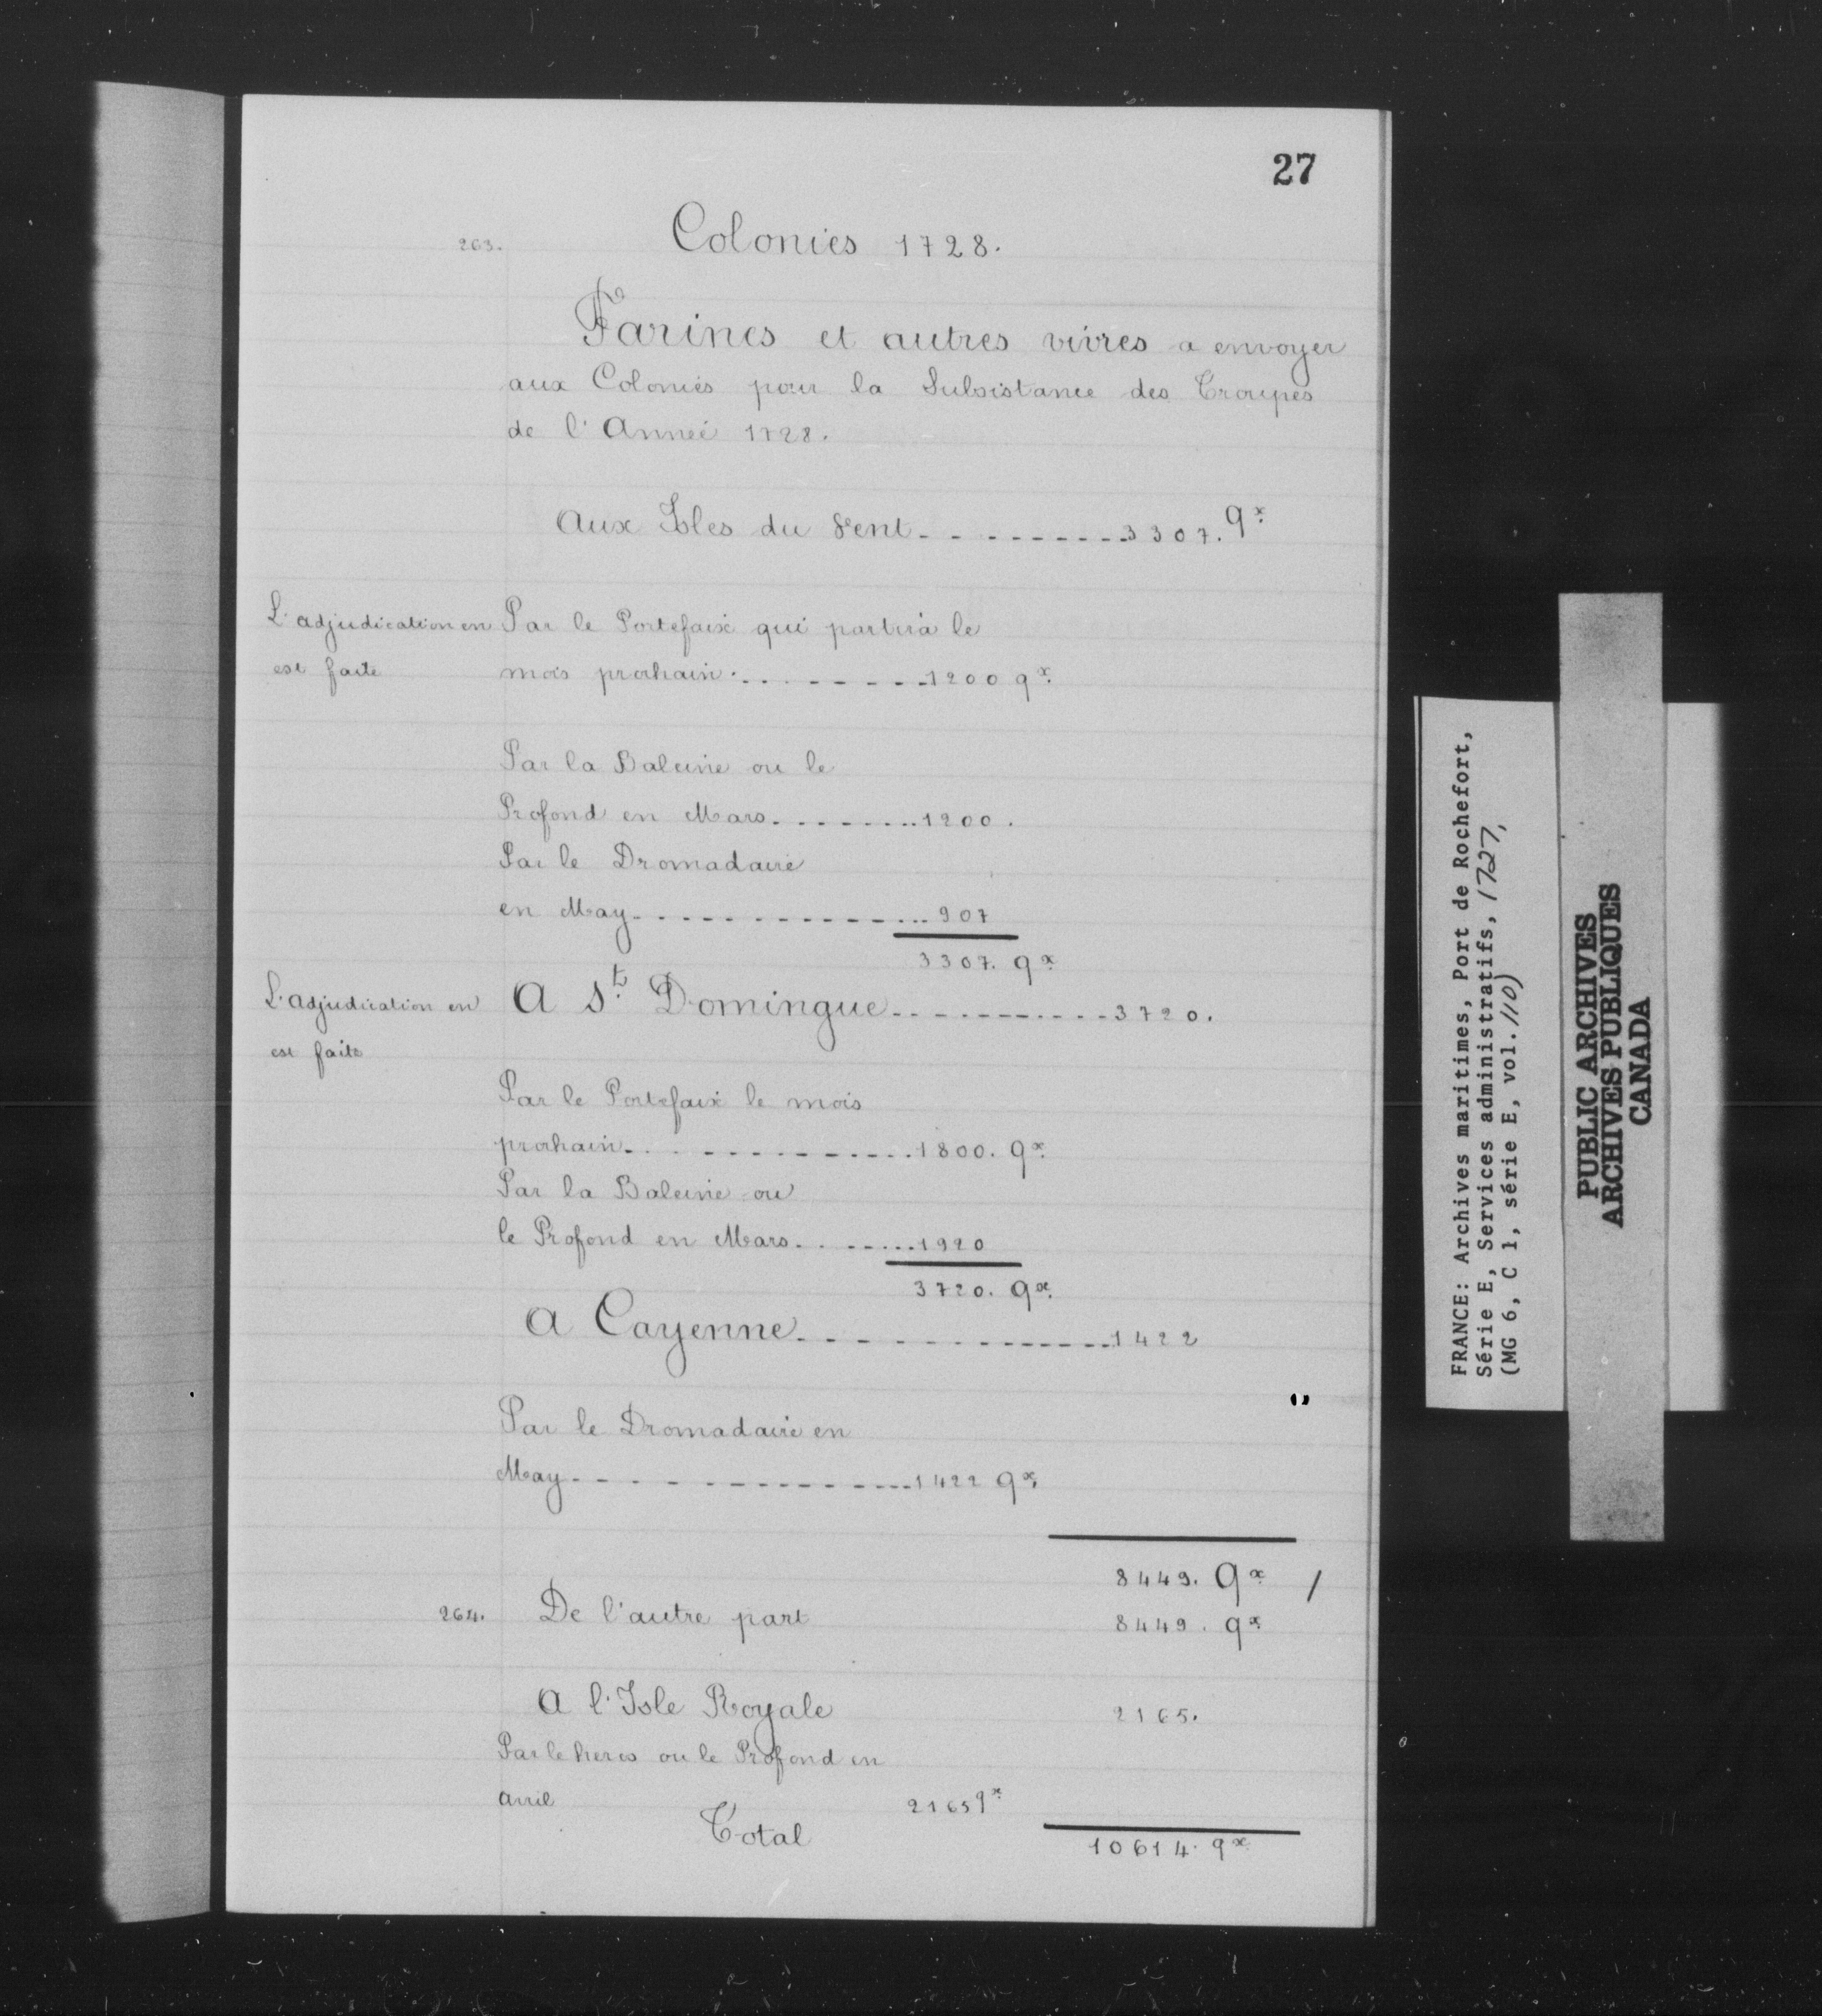 27
263.
Colonies 1728.
Farines et autres vivres a envoyer
aux Colonies pour la Subsistance des Troupes
de l'Anneé 1728.
Aux Isles du Vent - - - - - - - - - - 3307. qx.
L'adjudication en
est faite
Par le Portefaix qui partira le
mois prochain. - - - - - - - - - 1200 qx.
Par la Baleine ou le
Profond en Mars. - - - - - - - - 1200.
Par le Dromadaire
en May - - - - - - - - - - - - - 907
3307. qx.
L'adjudication en
est faite
A St. Domingue - - - - - - - - - - - 3720.
Par le Portefaix le mois
prochain - - - - - - - - - - - - 1800. qx.
Par la Baleine ou
le Profond en Mars. - - - - - - 1920
3720. qx.
A Cayenne - - - - - - - - - - - - - 1422
Par le Dromadaire en
May - - - - - - - - - - - - - - 1422 qx.
8449. qx. /
264.
De l'autre part 8449. qx.
A l'Isle Royale 2165.
Par le heros ou le Profond en
avril 2165 qx.
Total 10614. qx.
FRANCE: Archives maritimes, Port de Rochefort,
Série E, Services administratifs, 1727,
(MG 6, C 1, série E, vol. 110)
PUBLIC ARCHIVES
ARCHIVES PUBLIQUES
CANADA